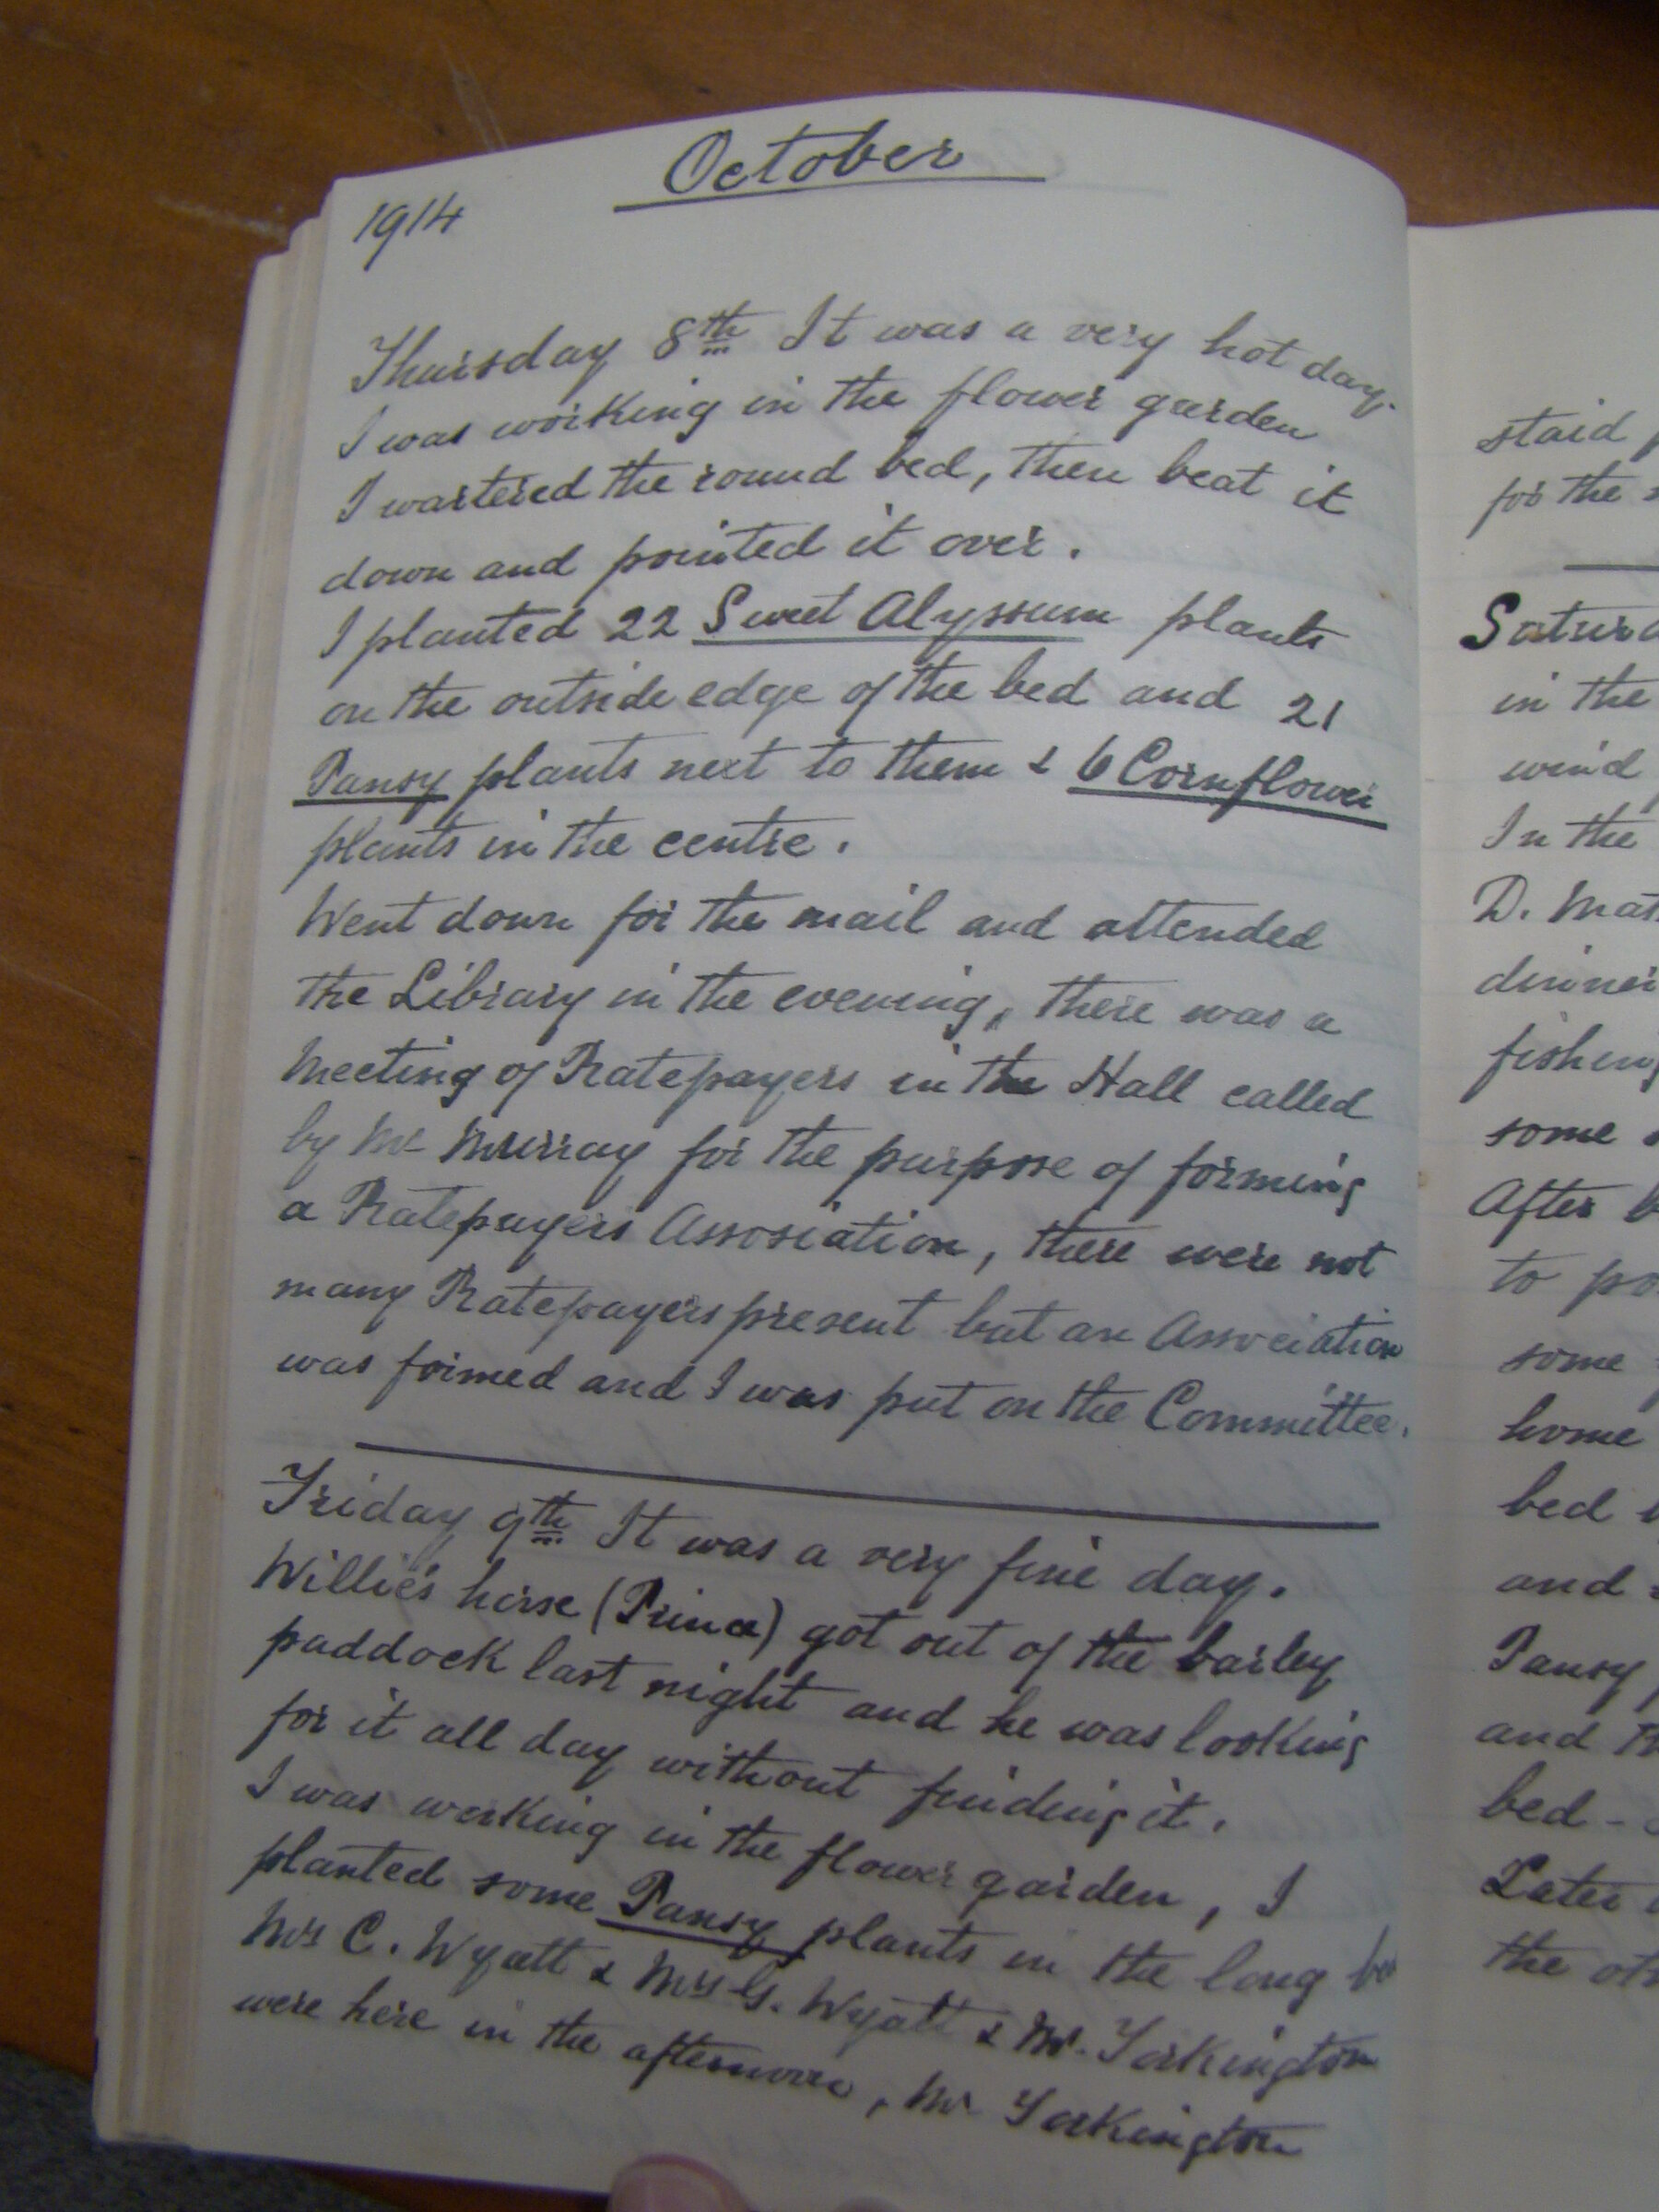 October
1914
Thursday 8th It was a very hot day.
I was working in the flower garden
I wartered the round bed, then beat it
down and pointed it over.
I planted 22 Sweet Alyssum plants
on the outside edge of the bed and 21
Pansy plants next to them & 6 Cornflower
plants in the centre.
Went down for the mail and attended
the Library in the evening, there was a
Meeting of Ratepayers in the Hall called
by Mr Murray for the purpose of forming
a Ratepayers Assosiation, there were not
many Ratepayers present but an Association
was formed and I was put on the Committee.
Friday 9th It was a very fine day.
Willie's horse (Prince) got out of the barley
paddock last night and he was looking
for it all day without finding it.
I was working in the flower garden, I
planted some Pansy plants in the long
Mrs C. Wyatt & Mrs G. Wyatt & Mr. Torkington
were here in the afternoon, Mr Torkington
staid
for the
Saturd
in the
wind
In the
D. Mat
dinner
fishing
some
After
to po
some
home
bed
and
Pansy
and
bed -
Later
the oth